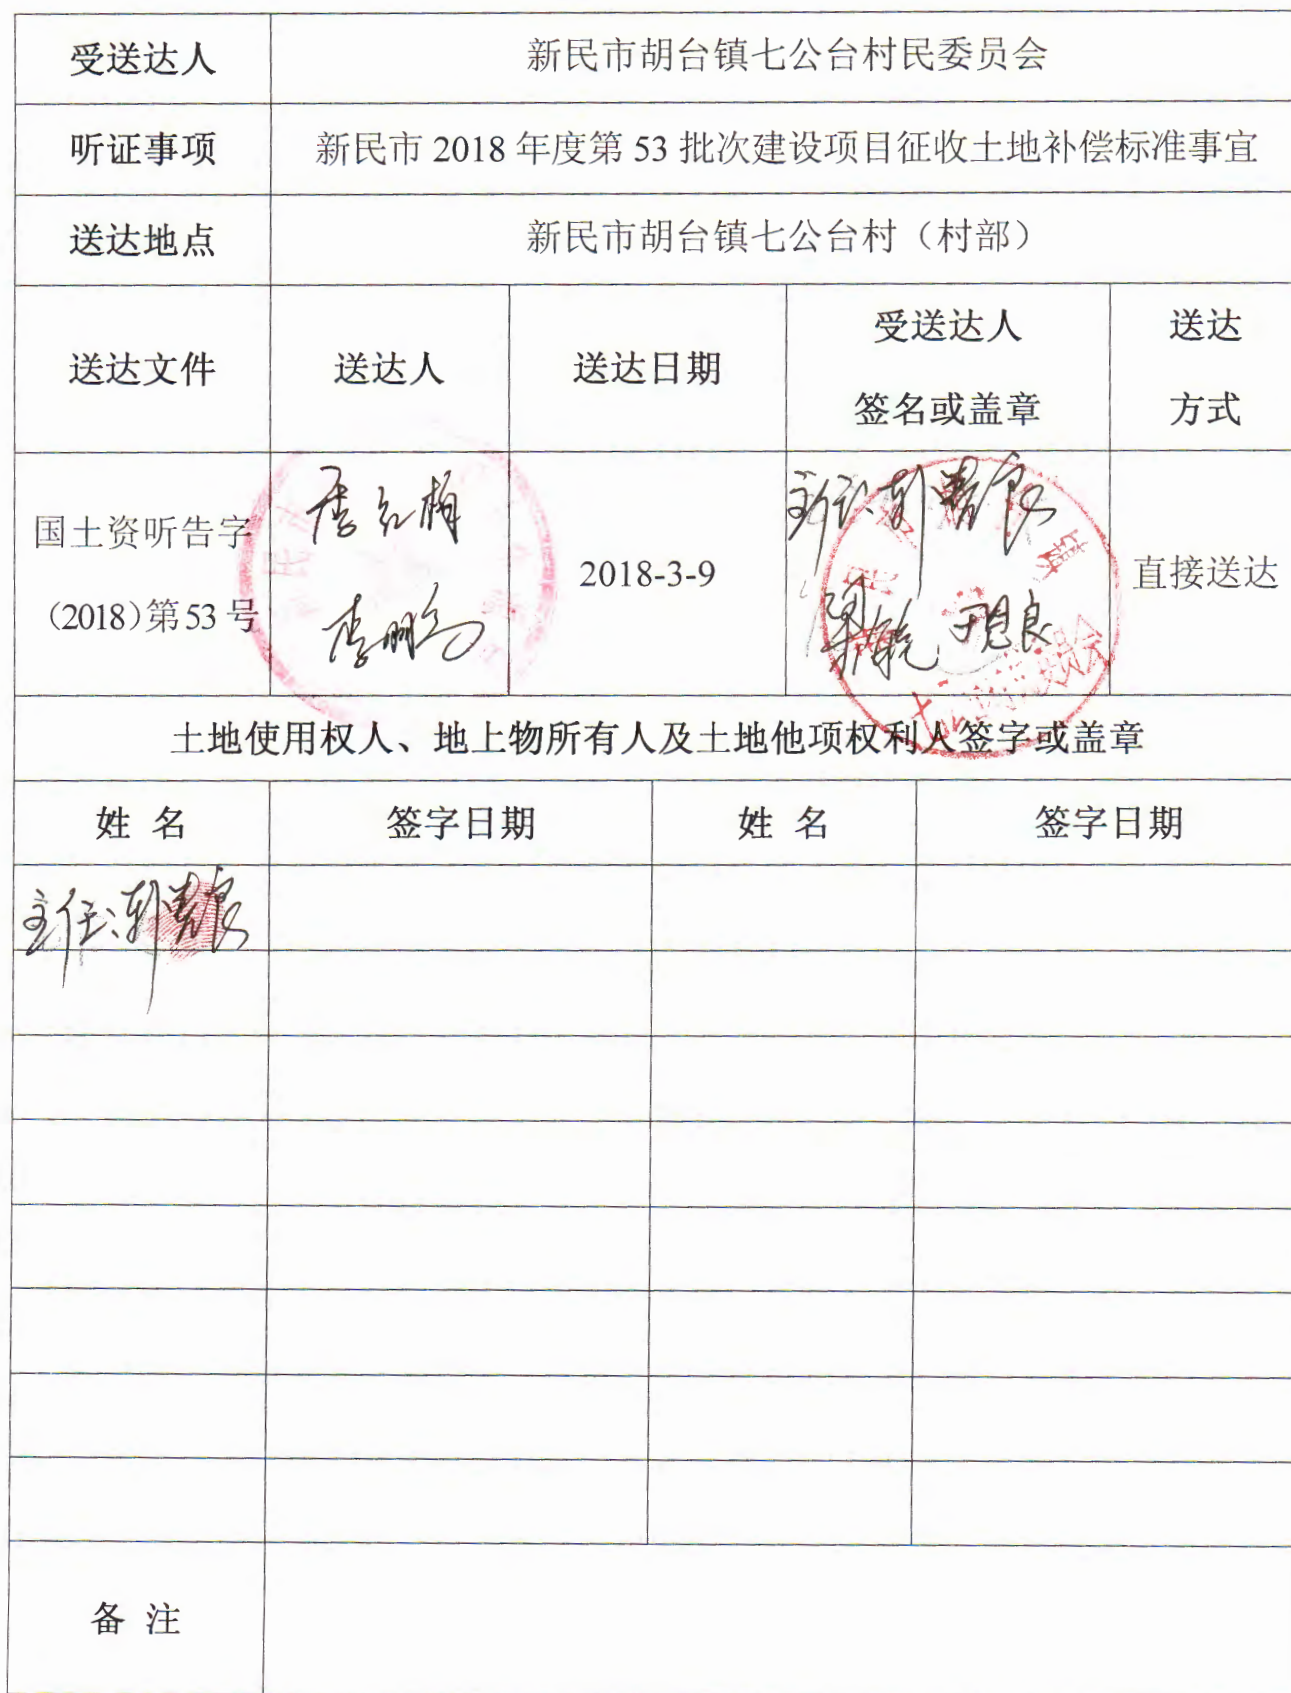 受送达人
新民市胡台镇七公台村民委员会
听证事项
新民市 2018 年度第 53 批次建设项目征收土地补偿标准事宜
送达地点
新民市胡台镇七公台村（村部）
送达文件
送达人
送达日期
受送达人
签名或盖章
送达
方式
国土资听告字
（2018）第53号
2018-3-9
主任：
于恩良
直接送达
土地使用权人、地上物所有人及土地他项权利人签字或盖章
姓 名
签字日期
姓 名
签字日期
主任：
备 注